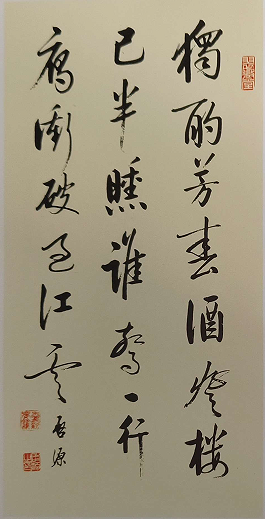 獨酌芳春酒登樓
已半曛誰驚一行
鴈衝破過江雲
啓源